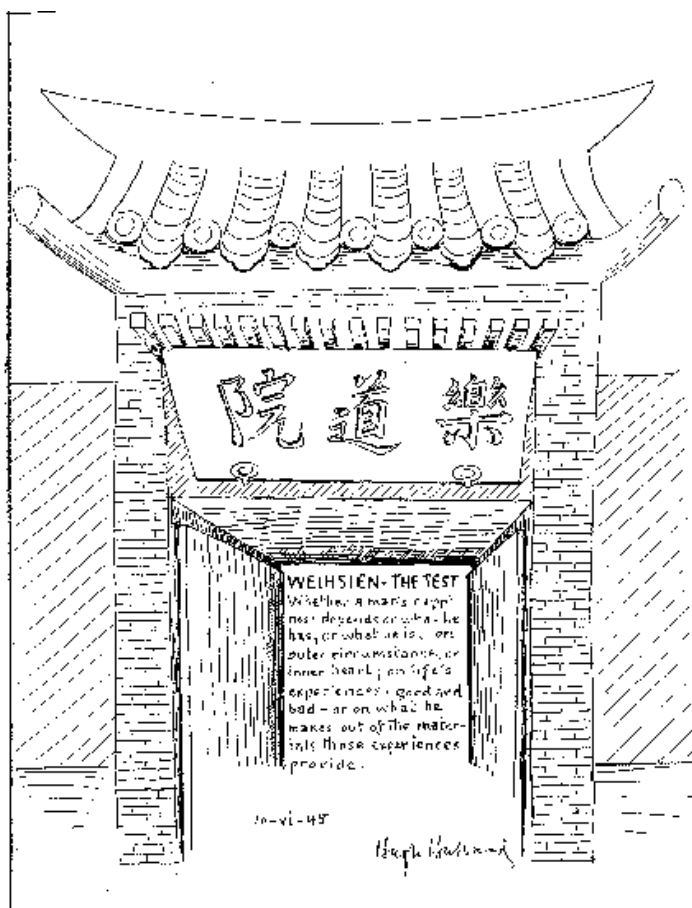 樂道院
WEIHSIEN - THE TEST
Whether a man's happi
ness depends on what he
has, or what he is, on
outer circumstance, or
inner heart; on life's
experiences - good and
bad - or on what he
makes out of the mater-
ials those experiences
provide.
10-vi-45
Hugh Hubbard